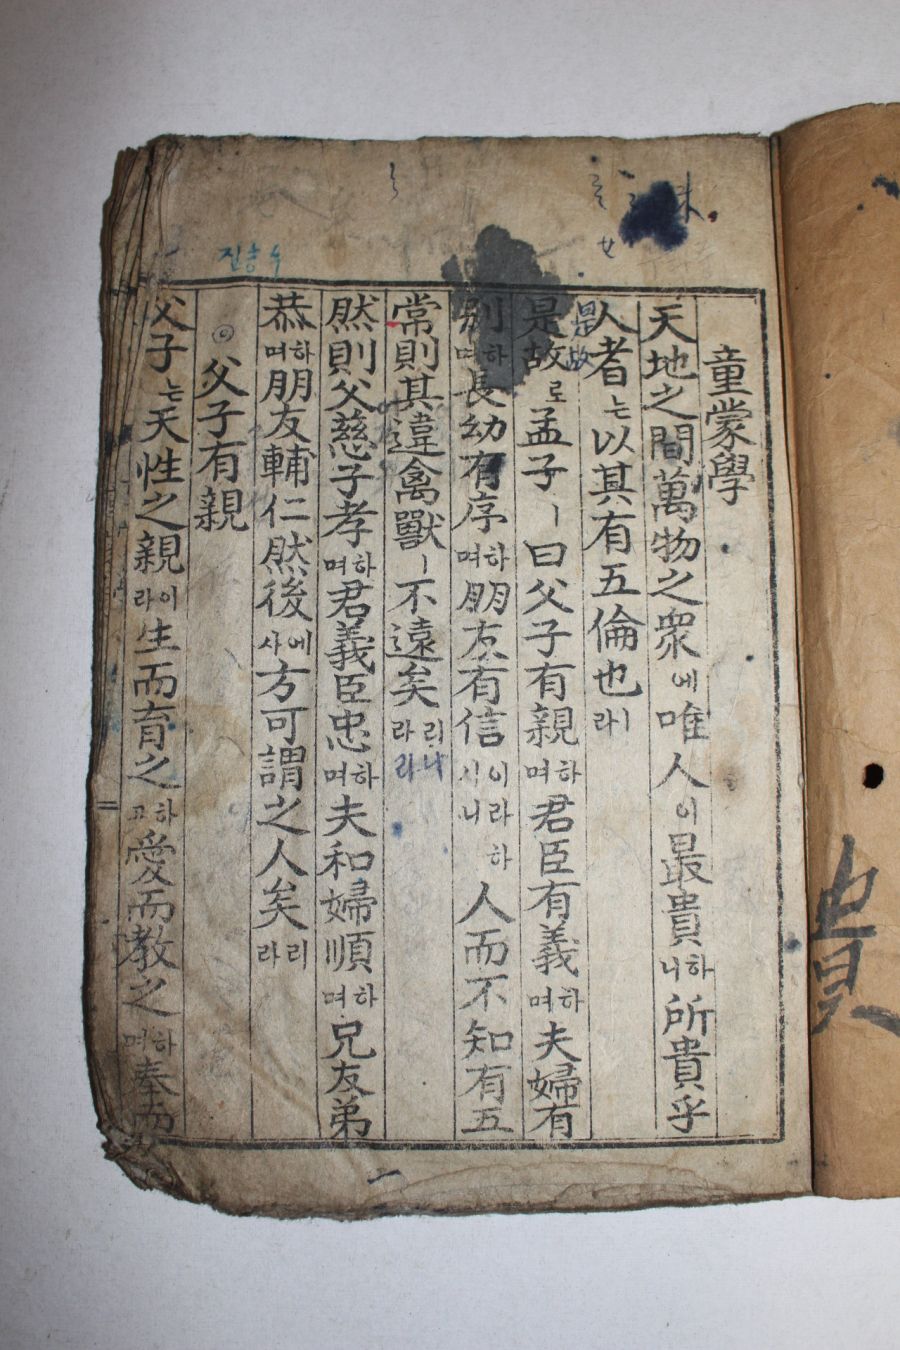 童蒙學
天地之間萬物之衆에唯人이最貴하니所貴乎
人者는以其有五倫也ㅣ라
是故
是故로孟子ㅣ曰父子有親하며君臣有義하며夫婦有
別하며長幼有序하며朋友有信이라하시니人而不知有五
常則其違禽獸ㅣ不遠矣리라
리니
然則父慈子孝하며君義臣忠하며夫和婦順하며兄友弟
恭하며朋友輔仁然後에사方可謂之人矣리라
父子有親
父子는天性之親이라生而育之하고愛而教之하며奉而
一